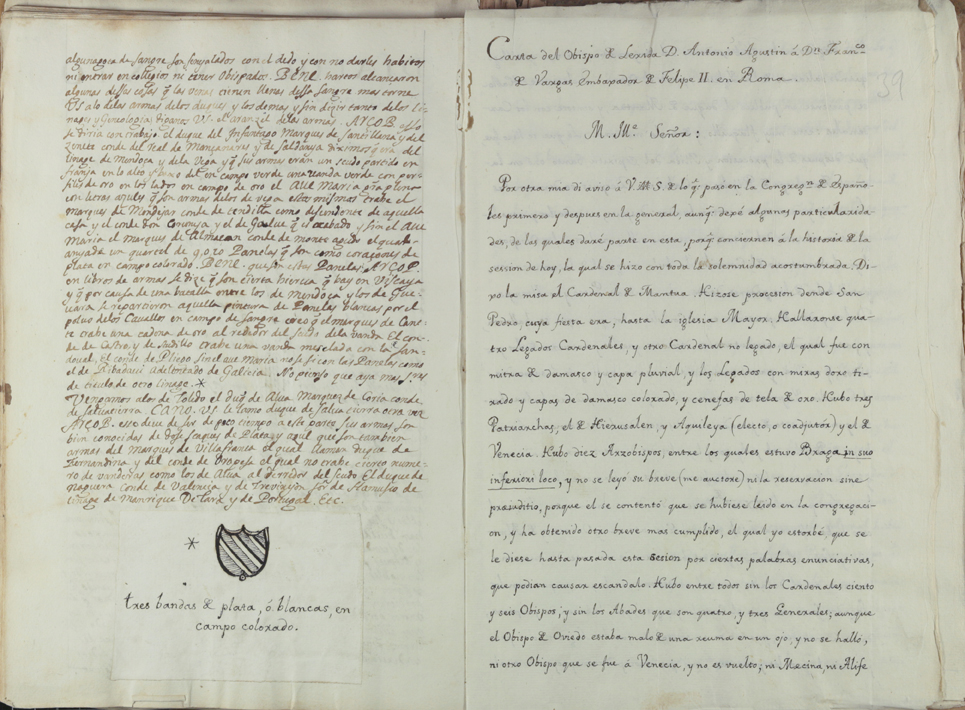 algunagota de sangre son senyalados con el dedo y con no darles habitos
ni entrar en collegios ni tener Obispados. BENI. hartos alcancaron
algunas dessas cosas q̃ las venas tienen llenas dessa sangre mas torne
VS alo delas armas delos duques y los demas y sin
ARCOB. assi
se diria con trabajo el duque del Infantazgo Marques de Santillana y del
Zenete conde del Real de Manzanares y de Saldanya diximos q̃ era del
linage de Mendoça y dela Vega y q̃ sus armas eran un scudo partido en
franja en lo alto y baxo del en campo verde una vanda verde con per-
files de oro en los lados en campo de oro el Aue Maria
con letras azules q̃ son armas delos de vega estas mismas trahe el
marques de Mondejar conde de Tendilla como desçendiente de aquella
casa y el conde dela Corunya y el de Galue q̃ es acabado y sin el Aue
Maria el marques de Almacan conde de monte agudo el qual
anyade un quartel de 9, o 10 Panelas q̃ son como coraçones de
plata en campo colorado. BENI. que son estas Panelas? ARCOP.
en libros de armas se dize q̃ son çierta hierua q̃ hay en Viscaya
y q̃ por causa de una batalla entre los de Mendoça y los de Gue-
uara se repartieron aquella pintura de Panelas blancas por el
poluo delos Cauallos en campo de sangre creo q̃ el marques de Cane-
te trahe una cadena de oro al rededor del scudo dela vanda. El con-
de de Castro y de trahe una vanda mesclada con la San-
doual, El conde de Pliego sin el Aue Maria no se si con las Panelas como
el de Ribadaui Adelantado de Galicia. No pienso que aya mas
de titulo de otro linage. *
Vengamos alos de Toledo el duq̃ de Alua Marques de Coria conde
de saluatierra CANO. VS. le llamo duque de salua tierra otra vez
ARCOB. esso deue de ser de poco tiempo a esta parte sus armas son
bien conocidas de dose scaques de Plata y azul que son tambien
armas del marques de Villafranca el qual llaman duque de
Fernandina y del conde de Oropesa el qual no trahe cierto nume-
ro de vanderas como los de Alua al derredor del scudo El duque de
naguera Conde de Valençia y de Treuinyo Sor. de Hamusco de
linage de Manrique De Lara y de Portugal. Etc.
*
tres bandas de plata, ó blancas, en
campo colorado.
39
Carta del Obispo de Lerida D. Antonio Agustin á Dn. Franco.
de Vargas Embaxador de Felipe II. en Roma.
M. Ille. Señor:
Por otra mia di aviso á V.M.S. de lo q̃. paso en la Congregn. de Españo-
les primero y despues en la general, aunq̃. dexé algunas particularida-
des, de las quales daré parte en esta, porq̃. conciernen á la historia de la
session de hoy, la qual se hizo con toda la solemnidad acostumbrada. Di-
xo la misa el Cardenal de Mantua. Hizose procesion dende San
Pedro, cuya fiesta era, hasta la iglesia Mayor. Hallaronse qua-
tro Legados Cardenales, y otro Cardenal no legado, el qual fue con
mitra de damasco y capa pluvial, y los Legados con mitras doro ti-
rado y capas de damasco colorado, y cenefas de tela de oro. Hubo tres
Patriarchas, el de Hierusalen, y Aquileya (electo, o coadjutor) y el de
Venecia. Hubo diez Arzobispos, entre los quales estuvo Braga in suo
inferiori loco, y no se leyó su breve (me auctore) ni la reservacion sine
præiuditio, porque el se contentó que se hubiese leido en la congregaci-
on, y ha obtenido otro breve mas cumplido, el qual yo estorbé, que se
le diese hasta pasada esta sesion por ciertas palabras enunciativas,
que podian causar escandalo. Hubo entre todos sin los Cardenales ciento
y seis Obispos; y sin los Abades que son quatro, y tres Generales; aunque
el Obispo de Oviedo estaba malo de una reuma en un ojo, y no se halló,
ni otro Obispo que se fue á Venecia, y no es vuelto; ni Mæcina, ni Alife